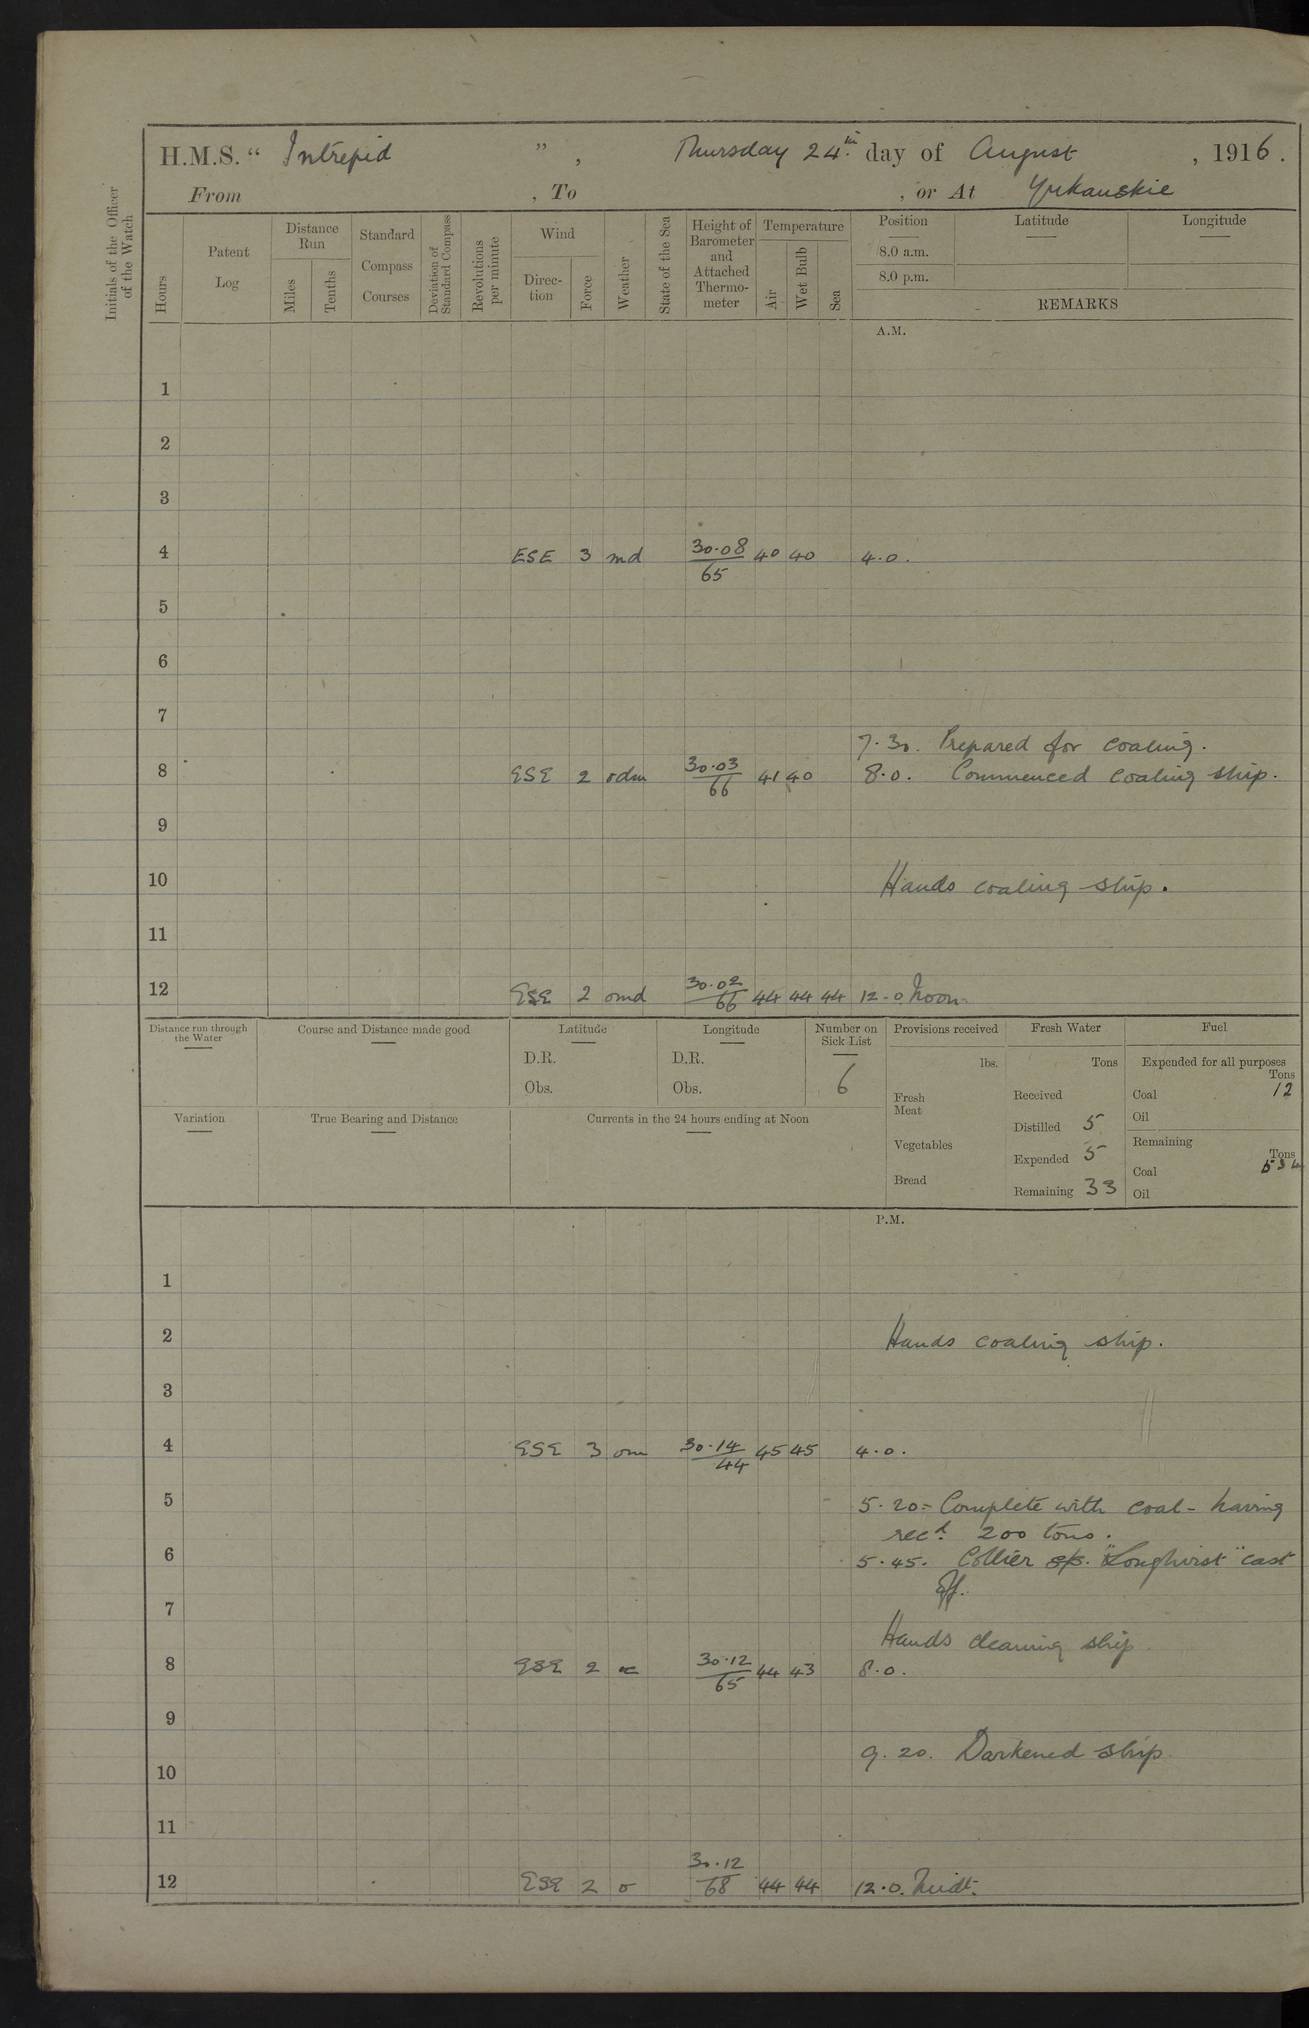 H.M.S. “ Intrepid ” , Thursday 24th day of August , 1916.
From , To , or At Yukanskie
Initials of the Officer of the Watch
Hours
Patent Log
Distance Run
Miles
Tenths
Standard Compass Courses
Deviation of Standard Compass
Revolutions per minute
Wind
Direction
Force
Weather
State of the Sea
Height of Barometer and Attached Thermometer
Temperature
Air
Wet Bulb
Sea
Position Latitude Longitude
8.0 a.m.
8.0 p.m.
REMARKS
A.M.
1
2
3
4 ESE 3 md 30·08/65 40 40 4·0.
5
6
7
7·30. Prepared for coaling.
8 ESE 2 odm 30·03/66 41 40 8·0. Commenced coaling ship.
9
10 Hands coaling ship.
11
12 ESE 2 omd 30·02/66 44 44 44 12·0 Noon
Distance run through the Water
Course and Distance made good
Latitude
D.R.
Obs.
Longitude
D.R.
Obs.
Number on Sick List
6
Provisions received
lbs.
Fresh Meat
Vegetables
Bread
Fresh Water
Tons
Received
Distilled 5
Expended 5
Remaining 33
Fuel
Expended for all purposes
Tons
Coal 12
Oil
Remaining
Tons
Coal
Oil
Variation
True Bearing and Distance
Currents in the 24 hours ending at Noon
P.M.
1
2 Hands coaling ship.
3
4 ESE 3 om 30·14/44 45 45 4·0.
5 5·20 - Complete with coal - having
recd. 200 tons.
6 5·45. Collier s/s. "Longhirst" cast
off.
7
Hands cleaning ship
8 ESE 2 30·12/65 44 43 8·0.
9
9·20. Darkened ship
10
11
12 ESE 2 o 30·12/68 44 44 12·0. Midt.